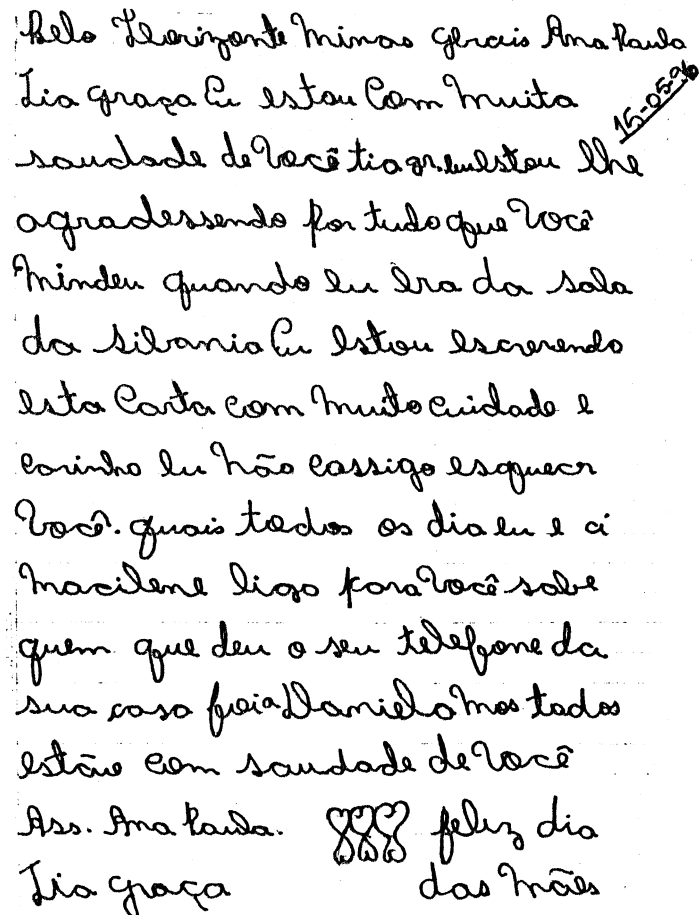 Belo Horizonte Minas gerais Ana Paula
15-05-96
Tia graça Eu estou Com Muita
saudade de Você tia gr. eu estou lhe
agradessendo por tudo que Você
Mindeu quando eu era da sala
da silvania Eu estou escrevendo
esta Carta com Muito cuidade e
carinho eu Não cossigo esquecer
Você. quais todos os dia eu e a
Macilene ligo para Você sabe
quem que deu o seu telefone da
sua casa foi a Daniela Mas todos
estão com saudade de Você
Ass. Ana Paula. feliz dia
Tia graça das Mães